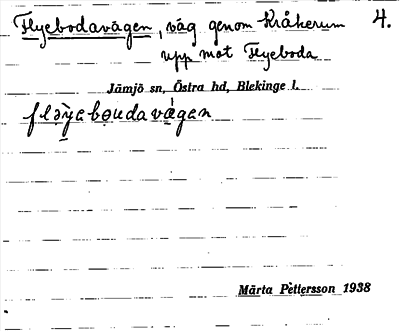 Flyebodavägen, väg genom Kråkerum 4.
upp mot Flyeboda
Jämjö sn, Östra hd, Blekinge l.
fløyeboudavägen
Märta Pettersson 1938